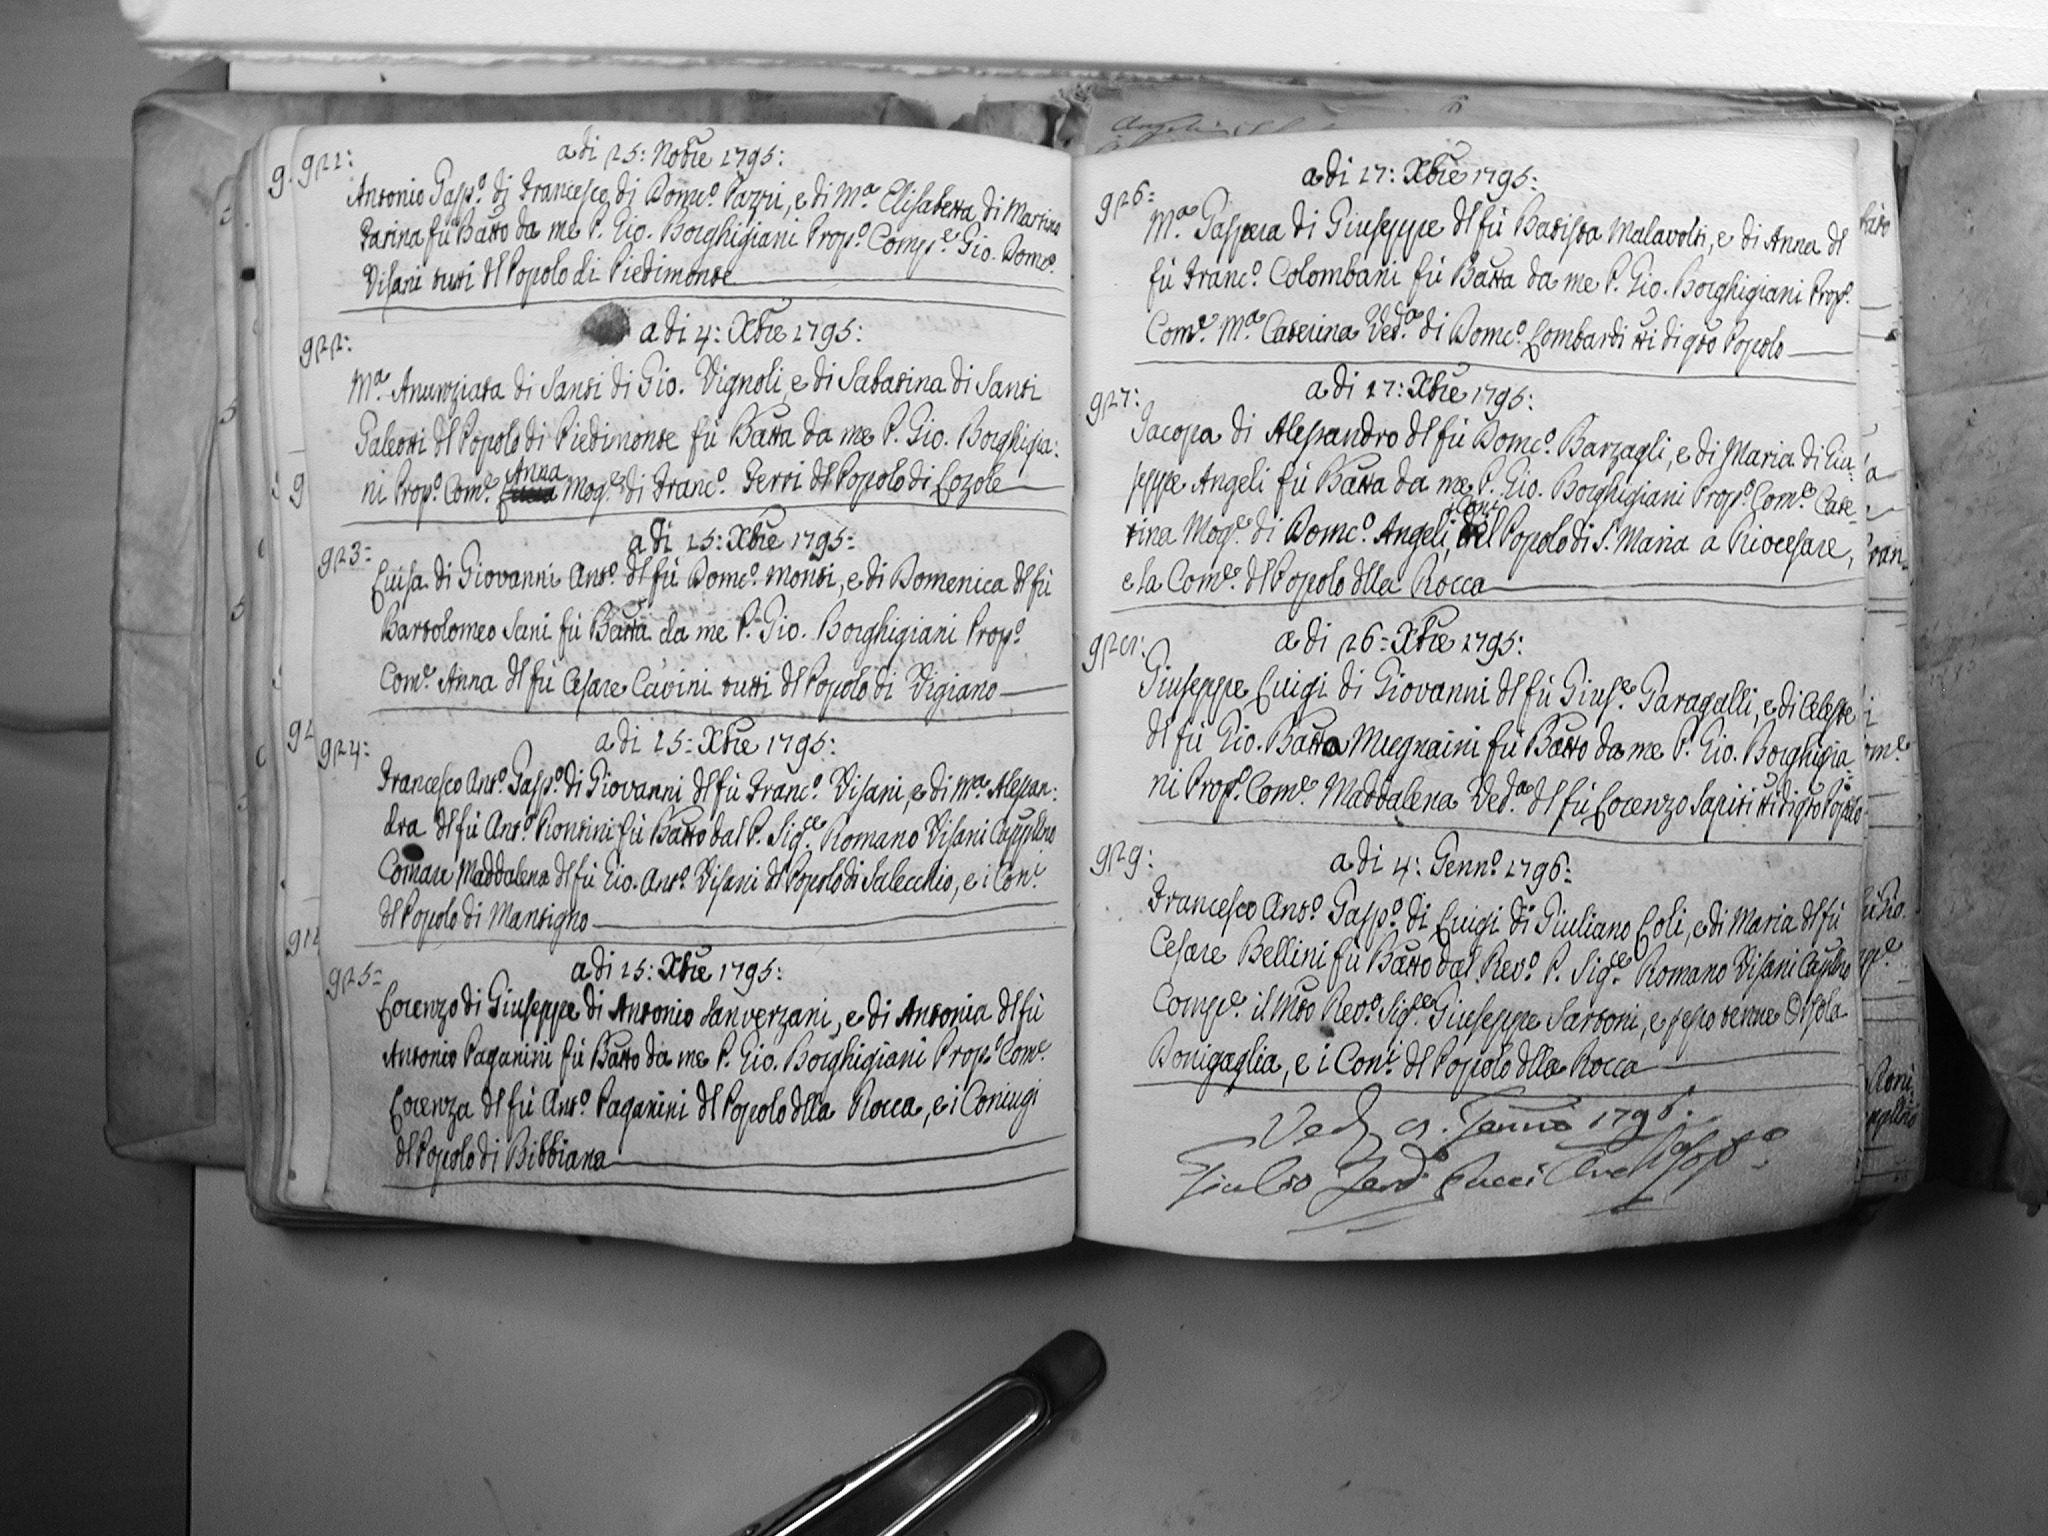 921:
a di 25: Nobre 1795:
Antonio Gasp.o di Francesco di Domc.o Pazzi, e di M.a Elisabetta di Martino
Farina fù Batto da me P. Gio. Borghigiani Prop.o Comp.e Gio. Domc.o
Visani tutti dl Popolo di Piedimonte
922:
a di 4: Xbre 1795:
M.a Anunziata di Santi di Gio. Vignoli, e di Sabatina di Santi
Galeotti dl Popolo di Piedimonte fù Batta da me P. Gio. Borghigia:
ni Prop.o Com.e Anna Mog.e di Franc.o Ferri dl Popolo di Lozole
923:
a di 15: Xbre 1795:
Luisa di Giovanni Ant.o dl fù Domc.o Monti, e di Domenica dl fù
Bartolomeo Sani fù Batta da me P. Gio. Borghigiani Prop.o
Com.e Anna dl fù Cesare Cavini tutti dl Popolo di Vigiano
924:
a di 15: Xbre 1795:
Francesco Ant.o Gasp.o di Giovanni dl fù Franc.o Visani, e di M.a Alesan:
dra dl fù Ant.o Rontini fù Batto dal P. Sig.re Romano Visani Capplno
Comare Maddalena dl fù Gio. Ant.o Visani dl Popolo di Salecchio, e i Con.i
dl Popolo di Mantigno
925:
a di 15: Xbre 1795:
Lorenzo di Giuseppe di Antonio Sanverzani, e di Antonia dl fù
Antonio Paganini fù Batto da me P. Gio. Borghigiani Prop.o Com.e
Lorenza dl fù Ant.o Paganini dl Popolo dlla Rocca, e i Coniugi
dl Popolo di Bibbiana
926:
a di 17: Xbre 1795:
M.a Gaspera di Giuseppe dl fù Batista Malavolti, e di Anna dl
fù Franc.o Colombani fù Batta da me P. Gio. Borghigiani Prop.o
Com.e M.a Caterina Ved.a di Domc.o Lombardi tti di qto Popolo
927:
a di 17: Xbre 1795:
Jacopa di Alessandro dl fù Domc.o Barzagli, e di Maria di Giu:
seppe Angeli fù Batta da me P. Gio. Borghigiani Prop.o Com.e Cate-
rina Mog.e di Domc.o Angeli, i Coni del Popolo di S. Maria a Riocesare,
e la Com.e dl Popolo dlla Rocca
928:
a di 26: Xbre 1795:
Giuseppe Luigi di Giovanni dl fù Gius.e Garagalli, e di Celeste
dl fù Gio. Batta Miegnaini fù Batto da me P. Gio. Borghigia:
ni Prop.o Com.e Maddalena Ved.a dl fù Lorenzo Sapiti tti di qto Popolo
929:
a di 4: Genn.o 1796:
Francesco Ant.o Gasp.o di Luigi di Giuliano Loli, e di Maria dl fù
Cesare Bellini fù Batto dal Rev.o P. Sig.re Romano Visani Capplno
Comp.e il Mto Rev.o Sig.re Giuseppe Sartoni, e p esso tenne Orsola
Bonigaglia, e i Con.i dl Popolo dlla Rocca
1796:
Giulio Pucci